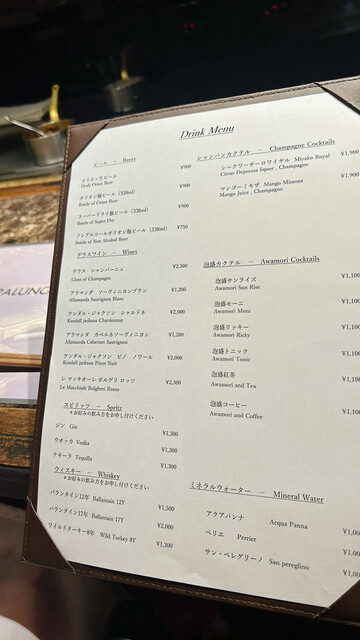 Drink Menu
ビール － Beers
オリオン生ビール ¥900
Draft Orion Beer
オリオン瓶ビール (334ml) ¥900
Bottle of Orion Beer
スーパードライ瓶ビール (334ml) ¥900
Bottle of Super Dry
ノンアルコールオリオン瓶ビール (334ml) ¥750
Bottle of Non Alcohol Beer
グラスワイン － Wines
グラス シャンパーニュ ¥2,300
Glass of Champagne
アラマンダ ソーヴィニヨンブラン ¥1,200
Allamanda Sauvignon Blanc
ケンダル・ジャクソン シャルドネ ¥2,000
Kendall Jackson Chardonnay
アラマンダ カベルネソーヴィニヨン ¥1,200
Allamanda Cabernet Sauvignon
ケンダル・ジャクソン ピノ ノワール ¥2,000
Kendall Jackson Pinot Noir
レ マッキオーレ ボルゲリ ロッソ ¥2,300
Le Macchiole Bolgheri Rosso
スピリッツ － Spritz
＊お好みの飲み方をお申し付けください
ジン Gin ¥1,300
ウオッカ Vodka ¥1,300
テキーラ Tequilla ¥1,300
ウィスキー － Whiskey
＊お好みの飲み方をお申し付けください
バランタイン12年 Ballantain 12Y ¥1,500
バランタイン17年 Ballantain 17Y ¥2,000
ワイルドターキー8年 Wild Turkey 8Y ¥1,300
シャンパンカクテル － Champagne Cocktails
シークワーサーロワイヤル Miyako Royal ¥1,900
Citrus Depressa liquor , Champagne
マンゴーミモザ Mango Mimoza ¥1,900
Mango Juice , Champagne
泡盛カクテル － Awamori Cocktails
泡盛サンライズ ¥1,100
Awamori Sun Rise
泡盛モーニ ¥1,100
Awamori Moni
泡盛リッキー ¥1,100
Awamori Ricky
泡盛トニック ¥1,100
Awamori Tonic
泡盛紅茶 ¥1,100
Awamori and Tea
泡盛コーヒー ¥1,100
Awamori and Coffee
ミネラルウォーター － Mineral Water
アクアパンナ Acqua Panna
ペリエ Perrier
サン・ペレグリーノ San pereglino